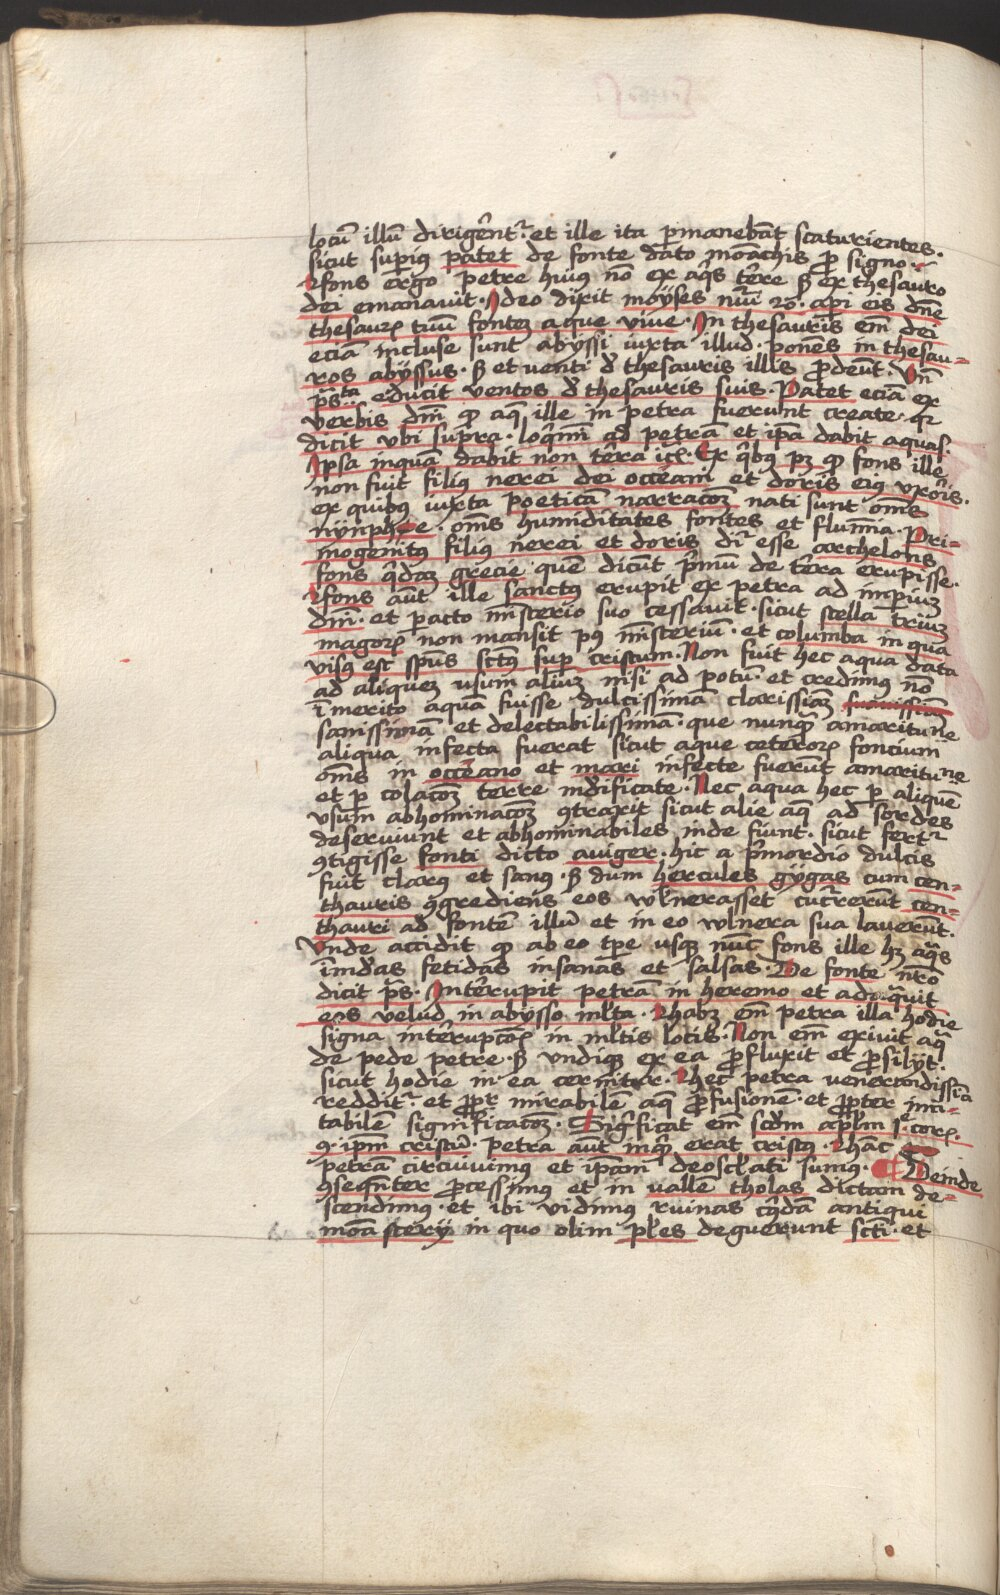 locū illū dirigērent᷑. et ille ita p̄manebāt scaturientes.
sicut sup̄ius patet de fonte dato monachis p̄ signo.
Fons ergo petre huiꝰ nō ex aq̄s tērre sꝫ ex thesauro
dei emanavit. Ideo dixit moÿses nūi 20. ap̄i eis dn̄e
thesaurꝝ tuū fontez aque vive. In thesauris em̄ dei
eciā incluse sunt abyssi iuxta illud. ponēs in thesau-
ros abÿssus. sꝫ et venti d̄ thesauris illis p̄deūt. Vn̄
p̄sᵗᵃ educit ventos d̄ thesauris suis. Patet eciā ex
verbis dn̄i ꝙ aq̄ ille in petra fuerunt create. qꝛ
dicit vbi supra. loq̄mī ad petrā et ip̄a dabit aquas.
Ipsa inquā dabit non tērra icꝫ. Ex q̄bꝫ pꝫ ꝙ fons ille
non fuit filiꝰ nerei dei occeani et doris eiꝰ vxōris.
ex quibꝫ iuxta poeticā narracōꝫ nati sunt om̄s
nÿnphee. om̄s humiditates fontes et flumīa. Pri-
mogenitꝰ filiꝰ nerei et doris di᷑ esse archelous
fons q̄daꝫ grecie quē dicūt p̄mū de tērra erupisse.
Fons aūt ille sanctꝰ erupit ex petra ad imp̄iuꝫ
dn̄i. et p̄acto misterio suo cessavit. sicut stella triuꝫ
magorꝝ non mansit pꝰ misteriū. et columba in qua
visꝰ est sp̄us sctꝰ sup̄ cristum. Non fuit hec aqua data
ad aliqueꝫ usum aliuꝫ nisi ad potū. et credimꝰ nō
īmerito aquā fuisse dulcissimā clarissimā suauissimā
sanissimā et delectabilissimā. que nunqꝫ amaritune
aliqua infecta fuerat sicut aque ceterorꝝ foncium
om̄s in occeano et mari infecte fuerūt amaritune
et p̄ colacōꝫ terre indlsificate. Nec aqua hec p̄ aliquē
vsum abhominacōꝫ ꝯtraxit sicut alie aq̄ ad sordes
deserviunt et abhominabiles inde fiunt. sicut fert᷑
ꝯtigisse fonti dicto auiger. hic a p̄mordio dulcis
fuit clarꝰ et sanꝰ. sꝫ dum hercules gÿgas cum cen-
thauris ꝯgrediens eos wlnerasset cucurrerūt cen-
thauri ad fontē illū et in eo wlnera sua laverūt.
Vnde accidit ꝙ ab eo tp̄e usqꝫ nūc fons ille hꝫ aq̄s
īmūdas fetidas insanas et salsas. De fonte nr̄o
dicit p̄s. Interrupit petrā in heremo et adaquit
eos velud in abÿsso ml̄ta. Rhabꝫ em̄ petra illa hodie
signa interrupcōꝝ in ml̄tis locis. Non em̄ exivit aq̄
de pede petre. sꝫ vndiqꝫ ex ea p̄fluxit et p̄silÿt.
sicut hodie in ea cernitur. Rhec petra venerandissīa
reddit᷑. et p̄p̄t mirabilē aq̄ p̄fusionē. et p̄p̄ter imi-
tabilē significacōꝫ. Sig̓ficat em̄ scd̄m apl̄m 1. corꝝ.
9. ip̄m cristū. petra aūt inq̄ erat cristꝰ. Rhāc
petrā circuivimꝰ et ip̄am deoscl̄ati sumꝰ. Deinde
ꝯseqn̄ter p̄cessimꝰ et in vallē tholas dictam de-
scendimꝰ. et ibi vidimꝰ ruinas cꝰdā antiqui
monasterÿ in quo olim pl̄es deguerunt scti. et